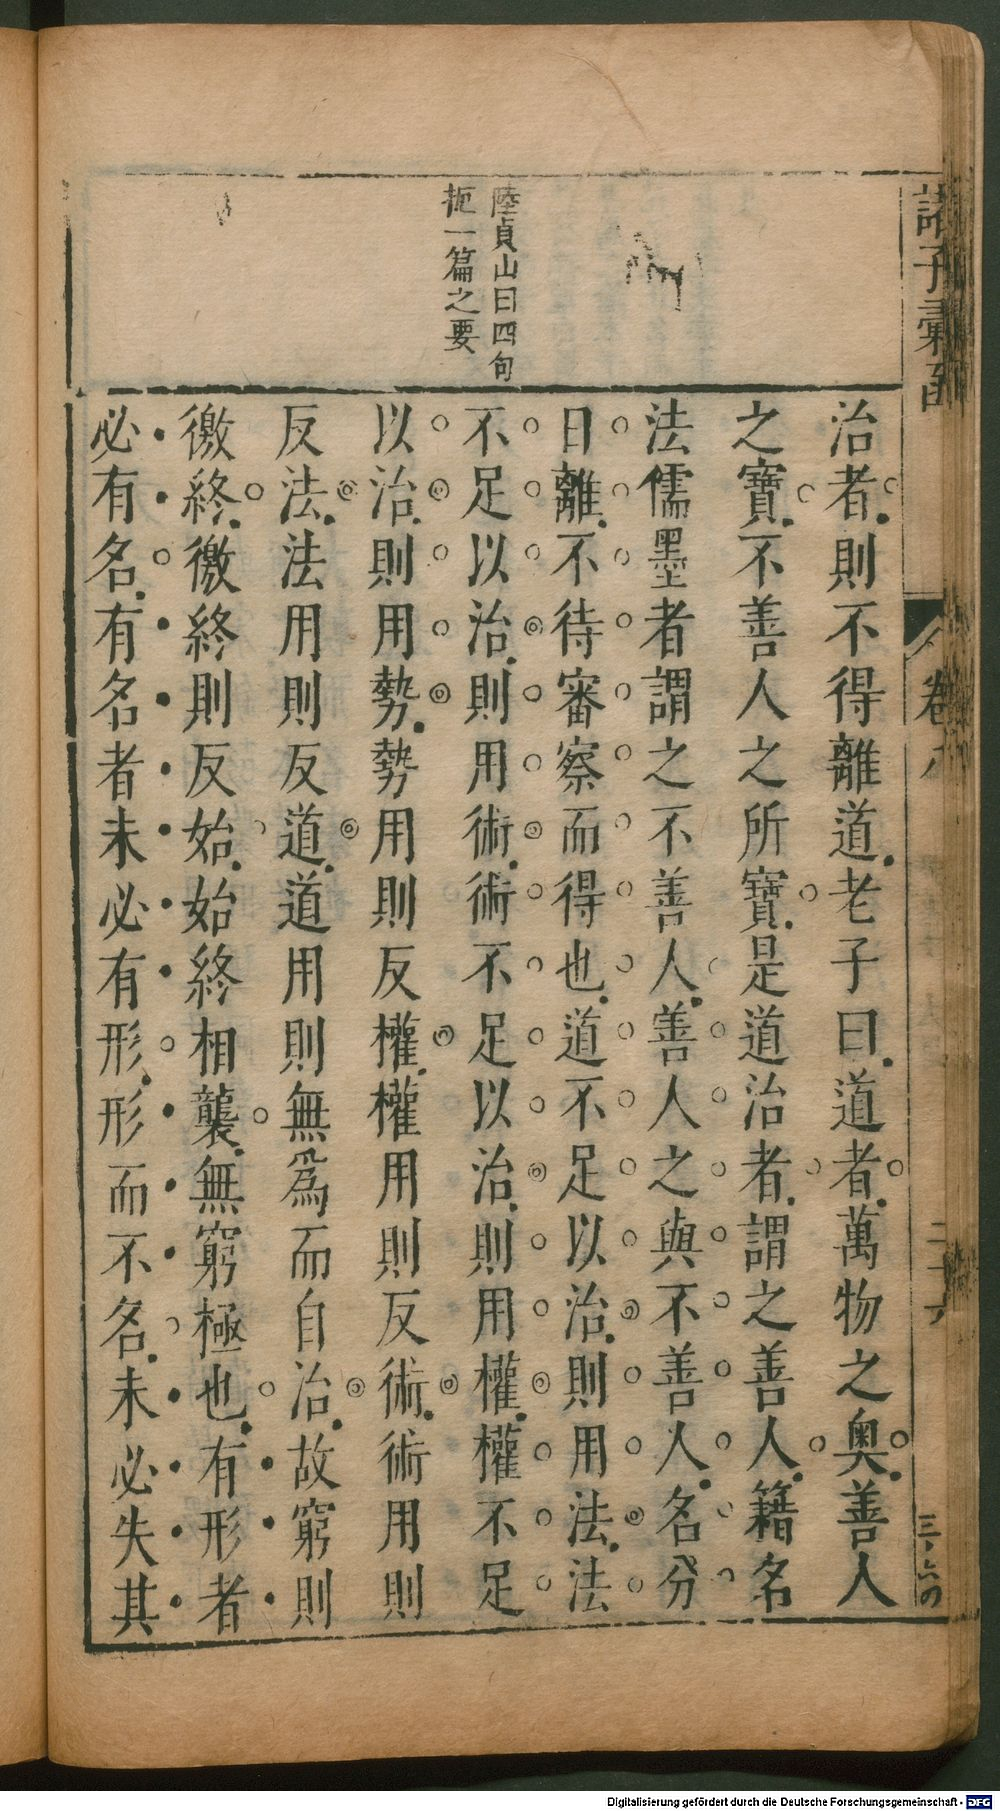 諸子彙函
卷八
治者則不得離道老子曰道者萬物之奥善人
之寶不善人之所寶是道治者謂之善人籍名
法儒墨者謂之不善人善人之與不善人名分
日離不待審察而得也道不足以治則用法法
不足以治則用術術不足以治則用權權不足
以治則用勢勢用則反權權用則反術術用則
反法法用則反道道用則無爲而自治故窮則
徼終徼終則反始始終相襲無窮極也有形者
必有名有名者未必有形形而不名未必失其
陸貞山曰四句
扼一篇之要
Digitalisierung gefördert durch die Deutsche Forschungsgemeinschaft - DFG